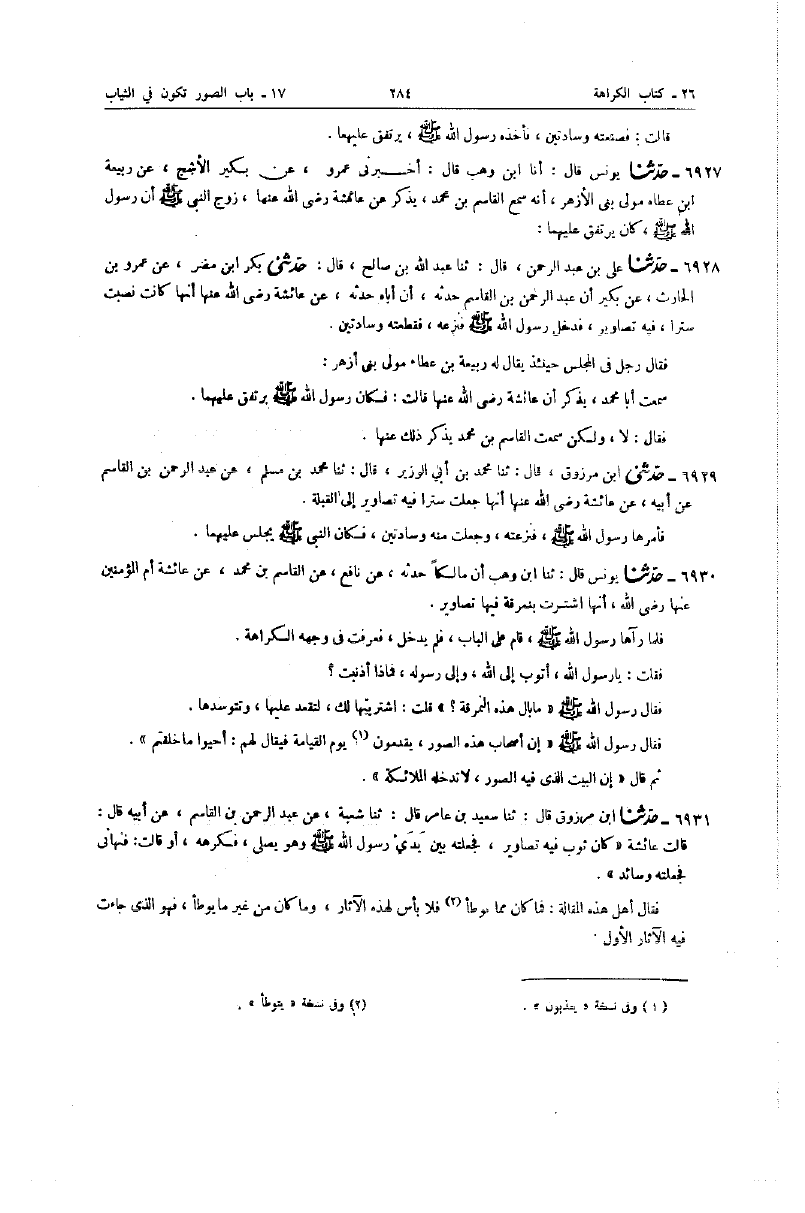 ٢٦ ـ كتاب الكراهة ٢٨٤ ١٧ ـ باب الصور تكون في الثياب
قالت : فصنعته وسادتين ، فأخذه رسول الله ﷺ ، يرتفق عليهما .
٦٩٢٧ ـ حدثنا يونس قال : أنا ابن وهب قال : أخبرنى عمرو ، عن بكير الأشج ، عن ربيعة
ابن عطاء مولى بنى الأزهر ، أنه سمع القاسم بن محمد ، يذكر عن عائشة رضى الله عنها ، زوج النبي ﷺ أن رسول
الله ﷺ ، كان يرتفق عليهما :
٦٩٢٨ ـ حدثنا على بن عبد الرحمن ، قال : ثنا عبد الله بن صالح ، قال : حدثنى بكر ابن مضر ، عن عمرو بن
الحارث ، عن بكير أن عبد الرحمن بن القاسم حدثه ، أن أباه حدثه ، عن عائشة رضى الله عنها أنها كانت نصبت
سترا ، فيه تصاوير ، فدخل رسول الله ﷺ فنزعه ، فقطعته وسادتين .
فقال رجل فى المجلس حينئذ يقال له ربيعة بن عطاء مولى بنى أزهر :
سمعت أبا محمد ، يذكر أن عائشة رضى الله عنها قالت : فكان رسول الله ﷺ يرتفق عليهما .
فقال : لا ، ولكن سمعت القاسم بن محمد يذكر ذلك عنها .
٦٩٢٩ ـ حدثنى ابن مرزوق ، قال : ثنا محمد بن أبي الوزير ، قال : ثنا محمد بن مسلم ، عن عبد الرحمن بن القاسم
عن أبيه ، عن عائشة رضى الله عنها أنها جعلت سترا فيه تصاوير إلى القبلة .
فأمرها رسول الله ﷺ ، فنزعته ، وجعلت منه وسادتين ، فكان النبي ﷺ يجلس عليهما .
٦٩٣٠ ـ حدثنا يونس قال : ثنا ابن وهب أن مالكاً حدثه ، عن نافع ، عن القاسم بن محمد ، عن عائشة أم المؤمنين
عنها رضى الله ، أنها اشترت بنمرقة فيها تصاوير .
فلما رآها رسول الله ﷺ ، قام على الباب ، فلم يدخل ، فعرفت فى وجهه الكراهة .
فقات : يارسول الله ، أتوب إلى الله ، وإلى رسوله ، فماذا أذنبت ؟
فقال رسول الله ﷺ « مابال هذه النمرقة ؟ » قلت : اشتريتها لك ، لتقعد عليها ، وتتوسدها .
فقال رسول الله ﷺ « إن أصحاب هذه الصور ، يقدمون (١) يوم القيامة فيقال لهم : أحيوا ماخلقتم » .
ثم قال « إن البيت الذى فيه الصور ، لاتدخله الملائكة » .
٦٩٣١ ـ حدثنا ابن مرزوق قال : ثنا سعيد بن عامر قال : ثنا شعبة ، عن عبد الرحمن بن القاسم ، عن أبيه قال :
قالت عائشة « كان ثوب فيه تصاوير ، فجعلته بين يَدَيْ رسول الله ﷺ وهو يصلى ، فكرهه ، أو قالت: فنهانى
فجعلته وسائد » .
فقال أهل هذه المقالة : فما كان مما يوطأ (٢) فلا بأس لهذه الآثار ، وما كان من غير ما يوطأ ، فهو الذى جاءت
فيه الآثار الأول .
(١) وفى نسخة « يعذبون » . (٢) وفى نسخة « يتوطأ » .